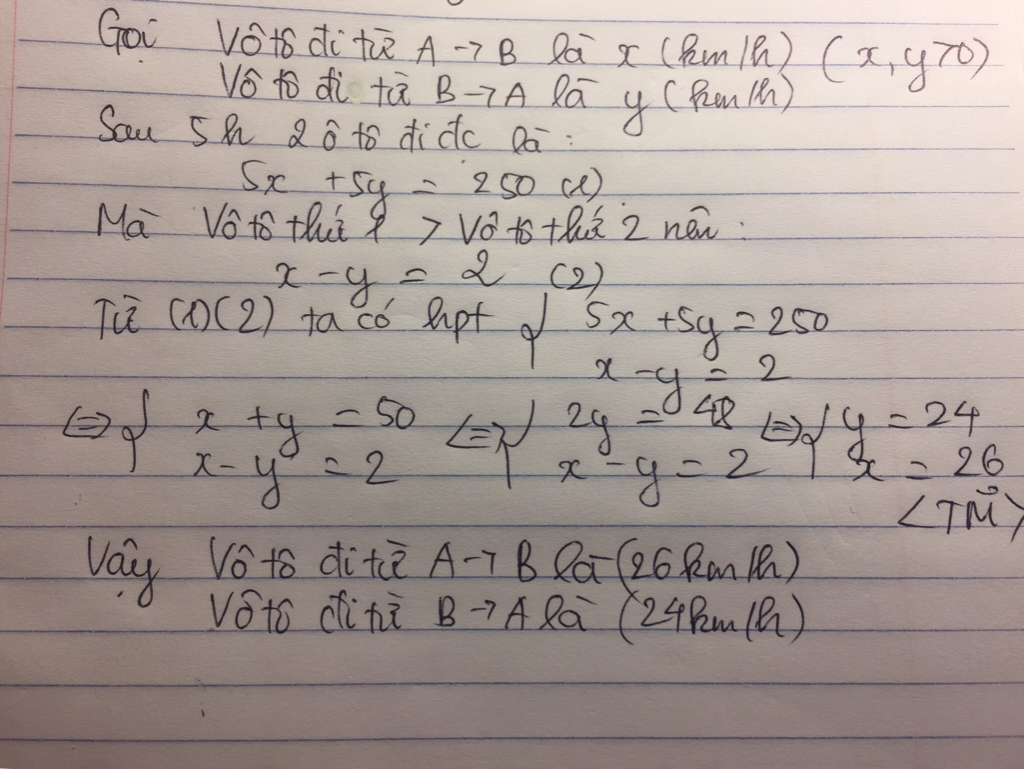 Gọi Vô tô đi từ A → B là x (km/h) (x, y>0)
Vô tô đi từ B → A là y (km/h)
Sau 5h 2 ô tô đi đc là:
5x + 5y = 250 (1)
Mà Vô tô thứ 1 > Vô tô thứ 2 nên:
x - y = 2 (2)
Từ (1)(2) ta có hpt { 5x + 5y = 250
x - y = 2
<=> { x + y = 50 <=> { 2y = 48 <=> { y = 24
x - y = 2 x - y = 2 x = 26
<TM>
Vậy Vô tô đi từ A → B là (26km/h)
Vô tô đi từ B → A là (24km/h)